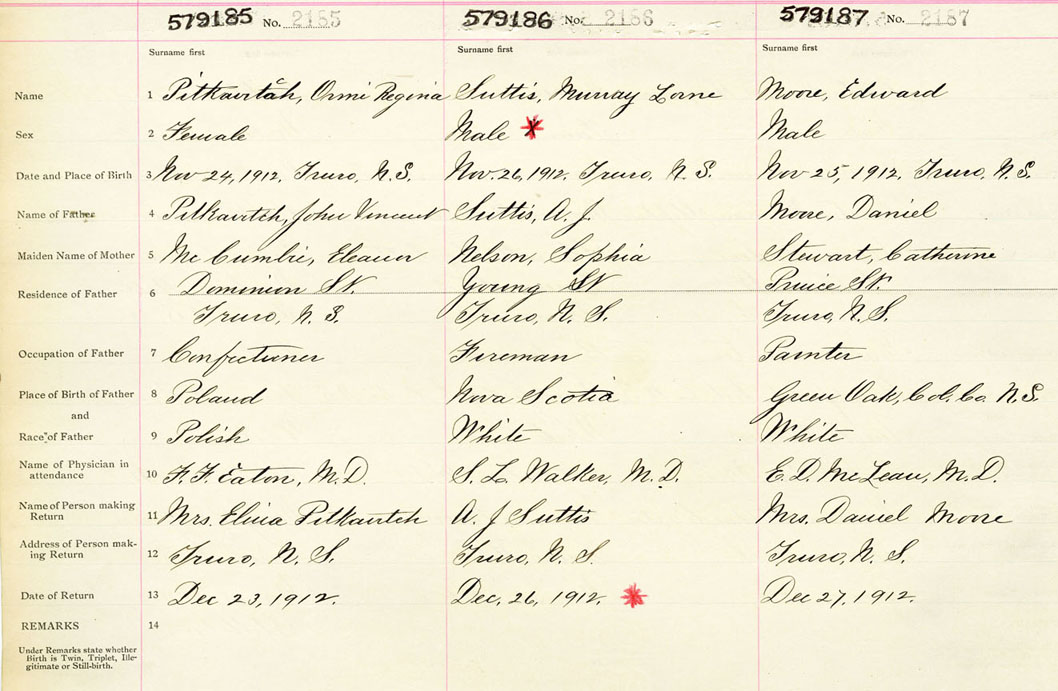 579185 No. 2185 579186 No. 2186 579187 No. 2187
Surname first Surname first Surname first
Name 1 Pitkavitch, Ormi Regina Suttis, Murray Lorne Moore, Edward
Sex 2 Female Male * Male
Date and Place of Birth 3 Nov 24, 1912, Truro, N.S. Nov. 26, 1912, Truro, N. S. Nov 25, 1912, Truro, N.S.
Name of Father 4 Pitkavitch, John Vincent Suttis, A. J. Moore, Daniel
Maiden Name of Mother 5 Mc Cumbie, Eleanor Nelson, Sophia Stewart, Catherine
Residence of Father 6 Dominion St. Young St Prince St.
Truro, N. S. Truro, N. S. Truro, N. S.
Occupation of Father 7 Confectioner Fireman Painter
Place of Birth of Father 8 Poland Nova Scotia Green Oak, Col. Co. N.S.
and
Race of Father 9 Polish White White
Name of Physician in
attendance 10 F. F. Eaton, M.D. S. L. Walker, M.D. E. D. McLean, M.D.
Name of Person making
Return 11 Mrs. Pitkavitch A. J Suttis Mrs. Daniel Moore
Address of Person mak-
ing Return 12 Truro, N. S. Truro, N. S. Truro, N. S.
Date of Return 13 Dec 23, 1912. Dec. 26, 1912. * Dec 27, 1912.
REMARKS 14
Under Remarks state whether
Birth is Twin, Triplet, Ille-
gitimate or Still-birth.